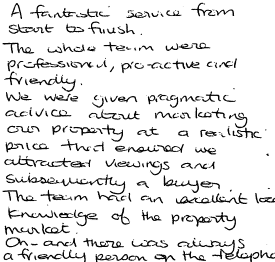 A fantastic service from
start to finish.
The whole team were
professional, pro-active and
friendly.
We were given pragmatic
advice about marketing
our property at a realistic
price that ensured we
attracted viewings and
subsequently a buyer.
The team had an excellent loc
knowledge of the property
market.
Oh - and there was always
a friendly person on the telepho